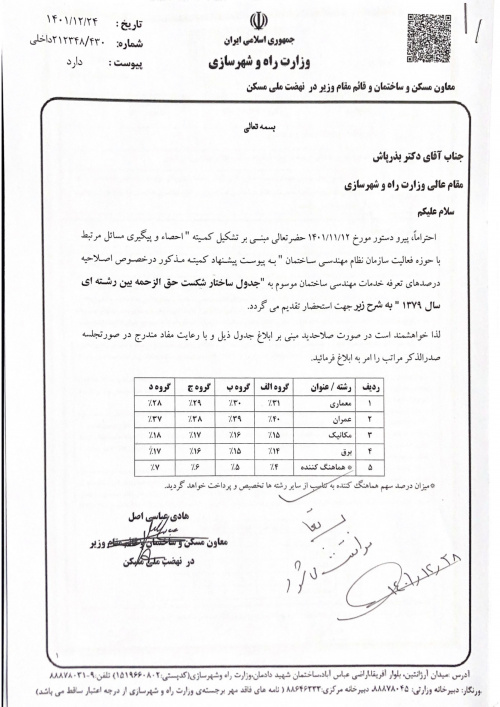 تاریخ : ۱۴۰۱/۱۲/۲۴
شماره: ۲۱۲۳۴۸/۴۳۰داخلی
پیوست : دارد
جمهوری اسلامی ایران
وزارت راه و شهرسازی
معاون مسکن و ساختمان و قائم مقام وزیر در نهضت ملی مسکن
بسمه تعالی
جناب آقای دکتر بذرپاش
مقام عالی وزارت راه و شهرسازی
سلام علیکم
احتراماً، پیرو دستور مورخ ۱۴۰۱/۱۱/۱۲ حضرتعالی مبنی بر تشکیل کمیته " احصاء و پیگیری مسائل مرتبط
با حوزه فعالیت سازمان نظام مهندسی ساختمان " به پیوست پیشنهاد کمیته مذکور درخصوص اصلاحیه
درصدهای تعرفه خدمات مهندسی ساختمان موسوم به "جدول ساختار شکست حق الزحمه بین رشته ای
سال ۱۳۷۹ " به شرح زیر جهت استحضار تقدیم می گردد.
لذا خواهشمند است در صورت صلاحدید مبنی بر ابلاغ جدول ذیل و با رعایت مفاد مندرج در صورتجلسه
صدرالذکر مراتب را امر به ابلاغ فرمائید.
ردیف رشته / عنوان گروه الف گروه ب گروه ج گروه د
۱ معماری ٪۳۱ ٪۳۰ ٪۲۹ ٪۲۸
۲ عمران ٪۴۰ ٪۳۹ ٪۳۸ ٪۳۷
۳ مکانیک ٪۱۵ ٪۱۶ ٪۱۷ ٪۱۸
۴ برق ٪۱۴ ٪۱۵ ٪۱۶ ٪۱۷
۵ * هماهنگ کننده ٪۴ ٪۵ ٪۶ ٪۷
*میزان درصد سهم هماهنگ کننده به تناسب از سایر رشته ها تخصیص و پرداخت خواهد گردید.
هادی عباسی اصل
معاون مسکن و ساختمان و قائم مقام وزیر
در نهضت ملی مسکن
موافقت می شود
۱۴۰۱/۱۲/۲۸
۱
آدرس :میدان آرژانتین، بلوار آفریقا،اراضی عباس آباد،ساختمان شهید دادمان،وزارت راه وشهرسازی(کدپستی:۱۵۱۹۶۶۰۸۰۲) تلفن:۹-۸۸۸۷۸۰۳۱
دورنگار: دبیرخانه وزارتی: ۸۸۸۷۸۰۴۵، دبیرخانه مرکزی: ۸۸۶۴۶۳۳۳ ( نامه های فاقد مهر برجستهی وزارت راه و شهرسازی از درجه اعتبار ساقط می باشد)